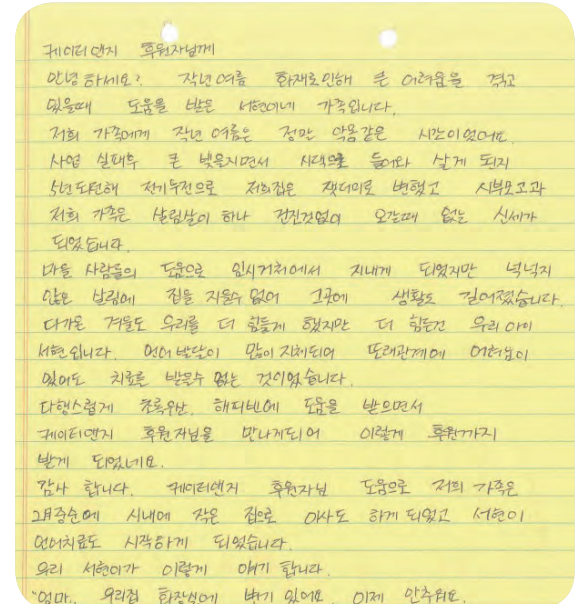 케이티앤지 후원자님께
안녕하세요? 작년여름 화재로인해 큰 어려움을 겪고
있을때 도움을 받은 서현이네 가족입니다.
저희 가족에게 작년 여름은 정말 악몽같은 시간이었어요
사업 실패후 큰 빚을지면서 시댁으로 들어와 살게 되지
5년도 전기누전으로 저희집은 잿더미로 변했고 시부모고과
저희 가족은 살림살이 하나 건진것없이 오갈때 없는 신세가
되었습니다.
마을 사람들의 도움으로 임시거처에서 지내게 되었지만 넉넉지
않은 살림에 집을 지을수 없어 그곳에 생활도 길어졌습니다.
다가온 겨울도 우리를 더 힘들게 했지만 더 힘든건 우리 아이
서현입니다. 언어발달이 많이 지체되어 또래관계에 어려움이
있어도 치료를 받을수 없는 것이었습니다.
다행스럽게 초록우산, 해피빈에 도움을 받으면서
케이티앤지 후원자님을 만나게되어 이렇게 후원까지
받게 되었네요.
감사 합니다. 케이티앤지 후원자님 도움으로 저희 가족은
2月중순에 시내에 작은 집으로 이사도 하게 되었고 서현이
언어치료도 시작하게 되었습니다.
우리 서현이가 이렇게 얘기 합니다.
"엄마.. 우리집 화장실에 변기 있어요. 이제 안추워요.